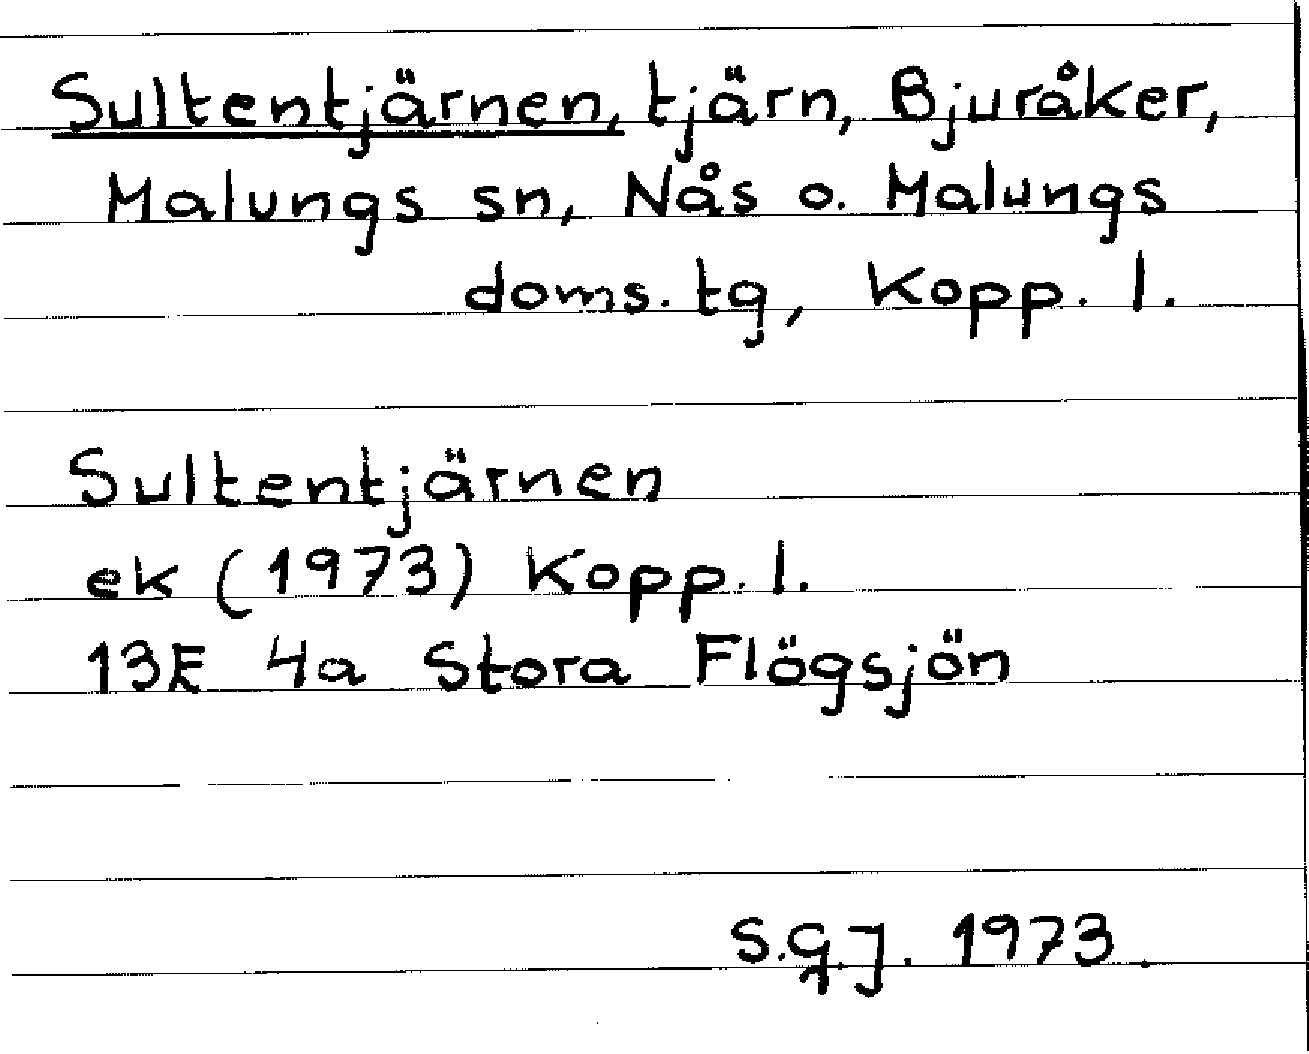 Sultentjärnen, tjärn, Bjuråker,
Malungs sn, Nås o. Malungs
doms. tg, Kopp. l.
Sultentjärnen
ek (1973) Kopp. l.
13E 4a Stora Flögsjön
S.G.J. 1973.